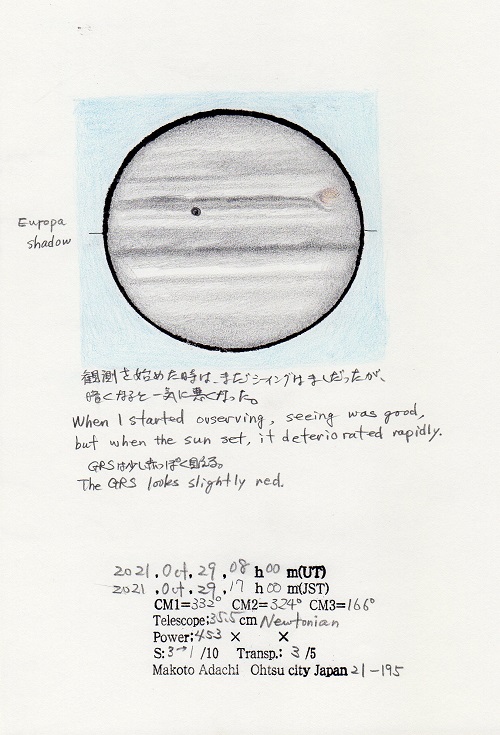 Europa
shadow
観測を始めた時は、まだシーイングはましだったが、
暗くなると一気に悪くなった。
When I started ovserving, seeing was good,
but when the sun set, it deteriorated rapidly.
GRSは少し赤っぽく見える。
The GRS looks slightly red.
2021.Oct.29.08 h 00 m(UT)
2021.Oct.29.17 h 00 m(JST)
CM1=332° CM2=324° CM3=166°
Telescope;35.5cm Newtonian
Power;453 × ×
S:3→1 /10 Transp.; 3 /5
Makoto Adachi Ohtsu city Japan 21-195